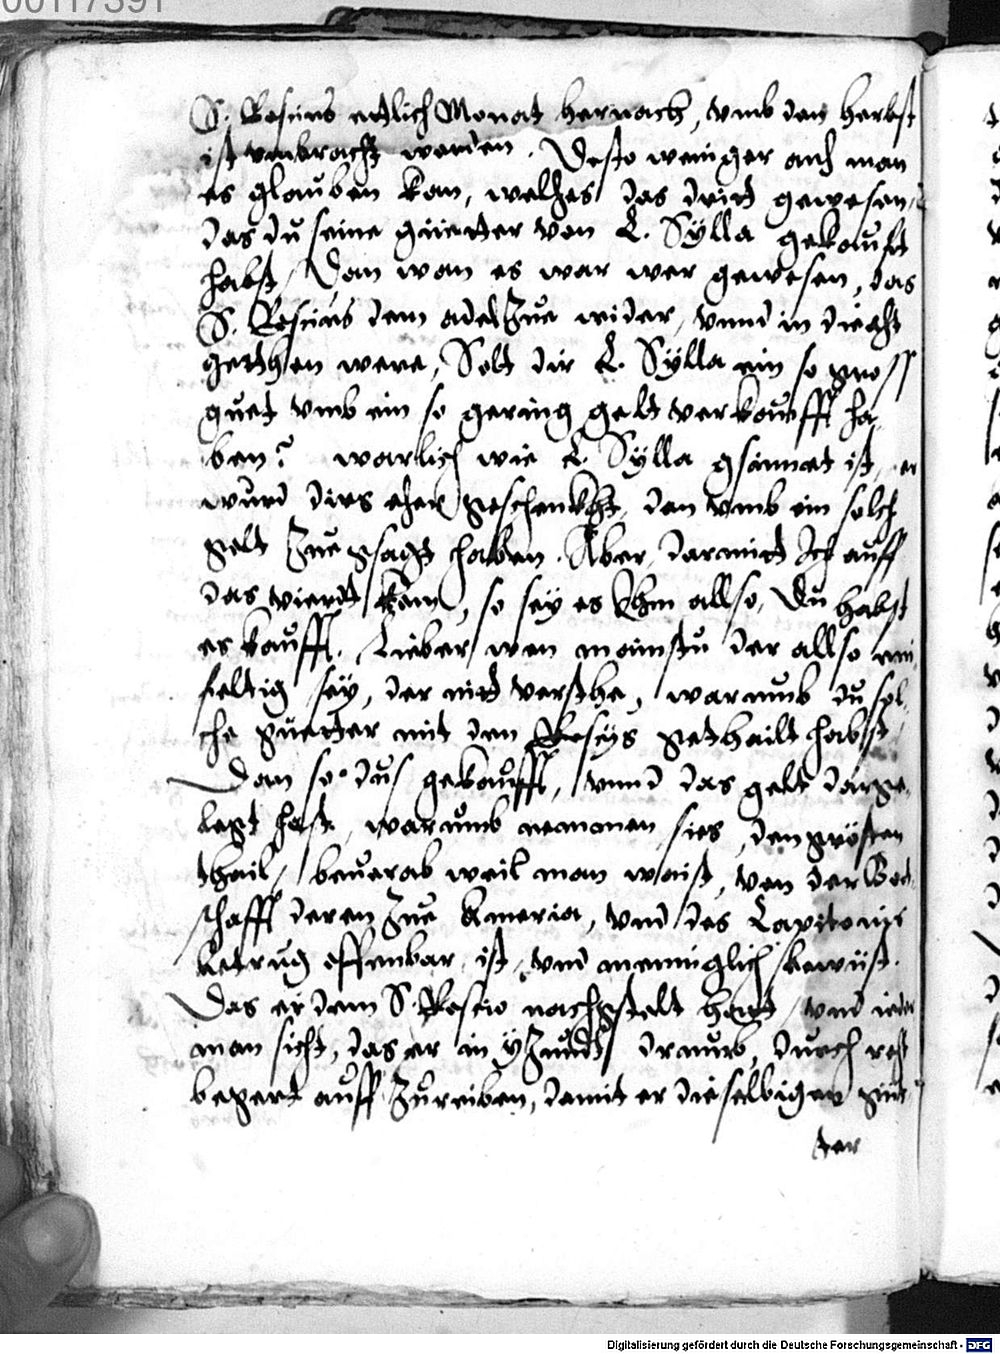 00117391
S. Roscius ettlich Monat hernach, vmb den herbst
ist vmbracht worden. Desto weniger auch man
es glauben kan, welches das dritt gewesen,
das du seine güetter von L. Sÿlla gekaufft
habst, Dan wan es war wer gewesen, das
S. Roscius dem adel Zue wider, vnnd in die acht
gethon were, Solt dir L. Sÿlla ein so gross
guet vmb ein so gering gelt verkaufft ha
ben? warlich wie L. Sÿlla gsinnet ist, er
wurd dirs eher geschenkht, dan vmb ein solch
gelt Zue gsagt haben. Aber, darmitt Ich auff
das vierdt kem, so seÿ es Ihm allso, Du habst
es kaufft. Lieber wen mainstu der allso ein
feltig seÿ, der nitt versthe, warumb du sol
che guetter mit den Rosciis gethailt habst,
Dan so dus gekaufft, vnnd das gelt darge
legt hast, warumb nemmen sies, den grösten
thail, beuorab weil man waist, von der Bot
schafft deren Zue Ameria, vnd des Capitonis
betrug offenbar ist, vnd meniglich bewüst.
Das er dem S. Roscio nachgstelt hatt, vnd ieder
man sicht, das er in ÿZundt darumb, durch rest
begert auff Zureiben, damit er dieselbigen güt
ter
Digitalisierung gefördert durch die Deutsche Forschungsgemeinschaft - DFG